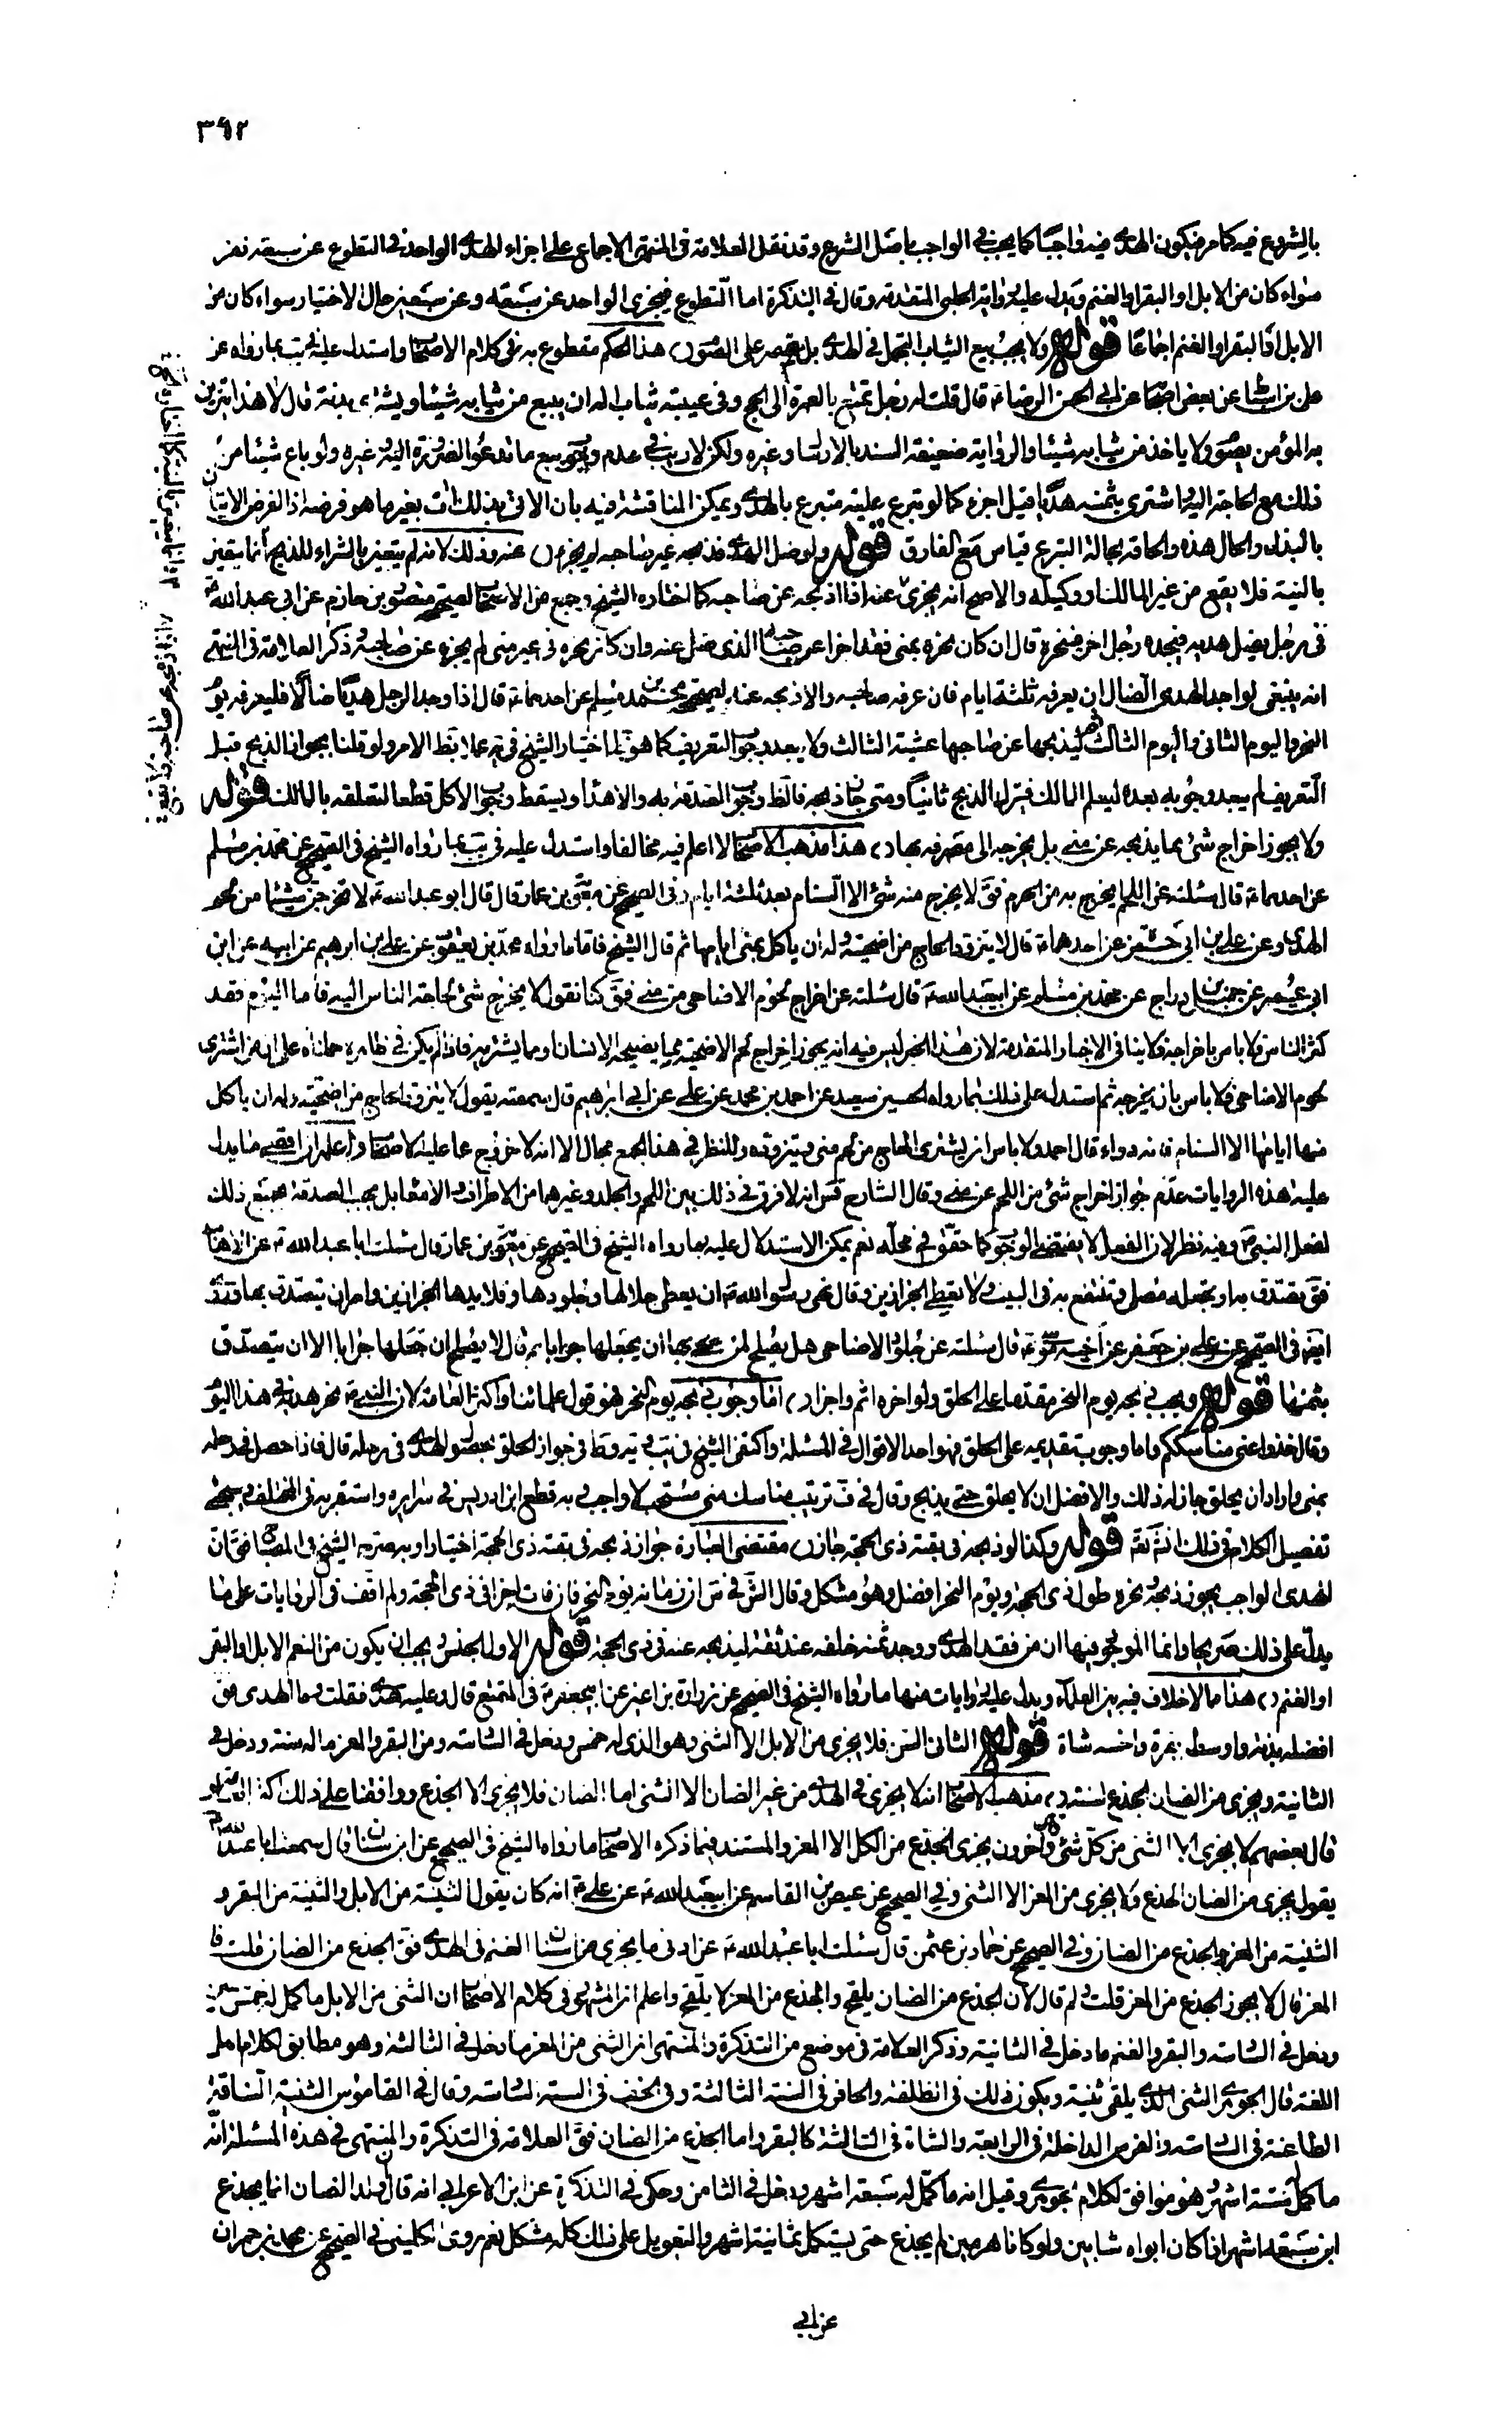 ٣٩٢
بالشروع فيه كما مر فيكون الهدى فيه واجبا كما يجب في الواجب باصل الشرع وقد نقل العلامة فى المنتهى الاجماع على اجزاء الهدى الواحد فى التطوع عن سبعة نفر
سواء كان من الابل او البقر او الغنم ويدل عليه رواية الحلبى المتقدمة وقال في التذكرة اما التطوع فيجزى الواحد عن سبعة وعن سبعين حال الاختيار سواء كان من
الابل او البقر او الغنم اجماعا قوله ولا يجب بيع الثياب التجمل فى الهدى بل يقتصر على الصوم هذا الحكم مقطوع به فى كلام الاصحاب واستدل عليه فى يب بما رواه عن
على بن اسباط عن بعض اصحابنا عن ابى الحسن الرضا ع قال قلت له رجل تمتع بالعمرة الى الحج وفى عيبته ثياب له ان يبيع من ثيابه شيئا ويشترى بدنة قال لا هذا يتزين
به المؤمن يصوم ولا ياخذ من ثيابه شيئا والرواية ضعيفة السند بالارسال وغيره ولكن لا ريب فى عدم وجوب بيع ما تدعو الضرورة اليه وغيره ولو باع شيئا من
ذلك مع الحاجة اليه واشترى بثمنه هديا قيل اجزء كما لو تبرع عليه متبرع بالهدى ويمكن المناقشة فيه بان الاتى بذلك ات بغير ما هو فرضه اذ الفرض الاتيان
بالبدل والحال هذه والحاقه بحالة التبرع قياس مع الفارق قوله ولو ضل الهدى فذبحه غير صاحبه لم يجز عنه وذلك لانه لم يتعين بالشراء للذبح انما يتعين
بالنية فلا يقع من غير المالك او وكيله والاصح انه يجزى عنه اذا ذبحه عن صاحبه كما اختاره الشيخ وجمع من الاصحاب لصحيحة منصور بن حازم عن ابى عبد الله ع
فى رجل يضل هديه فيجده رجل اخر فينحره قال ان كان نحره بمنى فقد اجزا عن صاحبه الذى ضل عنه وان كان نحره فى غير منى لم يجزه عن صاحبه وذكر العلامة فى المنتهى
انه ينبغى لواجد الهدى الضال ان يعرفه ثلثة ايام فان عرفه صاحبه والا ذبحه عنه لصحيحة محمد بن مسلم عن احدهما ع قال اذا وجد الرجل هديا ضالا فليعرفه يوم
النحر واليوم الثانى واليوم الثالث ثم ليذبحها عن صاحبها عشية الثالث ولا يبعد وجوب التعريف كما هو اختيار الشيخ فى يه عملا بظ الامر ولو قلنا بجواز الذبح قبل
التعريف لم يبعد وجوبه بعده ليعلم المالك فيترك الذبح ثانيا ومتى جاز ذبحه فالظ وجوب الصدقة به والاهداء ويسقط وجوب الاكل قطعا لتعلقه بالمالك قوله
ولا يجوز اخراج شئ مما يذبحه عن منى بل يخرجه الى مصرفه بها هذا مذهب الاصحاب لا اعلم فيه مخالفا واستدل عليه فى يب بما رواه الشيخ فى الصحيح عن محمد بن مسلم
عن احدهما ع قال سئلته عن اللحم يخرج به من الحرم فق لا يخرج منه شئ الا السنام بعد ثلثة ايام وفى الصحيح عن معوية بن عمار قال قال ابو عبد الله ع لا تخرجن شيئا من لحم
الهدى وعن على بن ابى حمزة عن احدهما ع قال لا يتزود الحاج من اضحيته وله ان ياكل بمنى ايامها ثم قال الشيخ فاما ما رواه محمد بن يعقوب عن على بن ابرهيم عن ابيه عن ابن
ابى عمير عن جميل بن دراج عن محمد بن مسلم عن ابيعبد الله ع قال سئلته عن اخراج لحوم الاضاحى من منى فق كنا نقول لا يخرج شئ لحاجة الناس اليه فاما اليوم فقد
كثر الناس فلا باس باخراجه فلا ينافى الاخبار المتقدمة لان هذا الخبر ليس فيه انه يجوز اخراج لحم الاضحية مما يضحيه الانسان او مما يشتريه فاذا لم يكن فى ظاهره حملناه على ان من اشترى
لحوم الاضاحى فلا باس بان يخرجه ثم استدل على ذلك بما رواه الحسين سعيد عن احمد بن محمد عن على عن ابى ابرهيم قال سمعته يقول لا يتزود الحاج من اضحيته وله ان ياكل
منها ايامها الا السنام فانه دواء قال احمد ولا باس ان يشترى الحاج من لحم منى ويتزوده وللنظر فى هذا الجمع مجال الا انه لا خروج عما عليه الاصحاب واعلم ان اقصى ما يدل
عليه هذه الروايات عدم جواز اخراج شئ من اللحم عن منى وقال الشارح قس انه لا فرق فى ذلك بين اللحم والجلد وغيرهما من الاطراف والامعا بل يجب الصدقة بجميع ذلك
لفعل النبى ص وفيه نظر لان الفعل لا يقتضى الوجوب كما حقق فى محله نعم يمكن الاستدلال عليه بما رواه الشيخ فى الصحيح عن معوية بن عمار قال سئلت ابا عبد الله ع عن الاهاب
فق تصدق به او تجعله مصلى تنتفع به فى البيت ولا تعطى الجزارين وقال نهى رسول الله ص ان يعطى جلالها وجلودها وقلايدها الجزارين وامر ان يتصدق بها وروى
ايض فى الصحيح عن على بن جعفر عن اخيه موسى ع قال سئلته عن جلود الاضاحى هل يصلح لمن ضحى بها ان يجعلها جرابا قال لا يصلح ان يجعلها جرابا الا ان يتصدق
بثمنها قوله ويجب ذبحه يوم النحر مقدما على الحلق ولو اخره اثم واجزاء اما وجوب ذبحه يوم النحر فهو قول علمائنا واكثر العامة لان النبى ص نحر هديه فى هذا اليوم
وقال خذوا عنى مناسككم واما وجوب تقديمه على الحلق فهو احد الاقوال فى المسئلة واكتفى الشيخ فى يب و يه و ط فى جواز الحلق بحصول الهدى فى رحله قال فاذا حصل فى رحله
بمنى واراد ان يحلق جاز له ذلك والافضل ان لا يحلق حتى يذبح وقال فى ف ترتيب مناسك منى مستحب لا واجب وبه قطع ابن ادريس فى سرايره واستقربه فى المختلف وسيجئ
تفصيل الكلام فى ذلك انش تع قوله وكذا لو ذبحه فى بقية ذى الحجة جاز مقتضى العبارة جواز ذبحه فى بقية ذى الحجة اختيارا وبه صرح الشيخ فى المصباح فق ان
الهدى الواجب يجوز ذبحه ونحره طول ذى الحجة ويوم النحر افضل وهو مشكل وقال الش فى س ان زمانه يوم النحر فان فات اجزا فى ذى الحجة ولم اقف فى الروايات على ما
يدل على ذلك صريحا وانما الموجود فيها ان من فقد الهدى ووجد ثمنه خلفه عند ثقة ليذبحه عنه فى ذى الحجة قوله الاول الجنس ويجب ان يكون من النعم الابل والبقر
او الغنم هذا مما لا خلاف فيه بين العلماء ويدل عليه روايات منها ما رواه الشيخ فى الصحيح عن زرارة بن اعين عن ابيجعفر ع فى المتمتع قال وعليه الهدى فقلت وما الهدى فق
افضله بدنة واوسطه بقرة واخسه شاة قوله الثانى السن فلا يجزى من الابل الا الثنى وهو الذى له خمس ودخل فى السادسة ومن البقر والمعز ما له سنة ودخل فى
الثانية ويجزى من الضان الجذع لسنته مذهب الاصحاب انه لا يجزى فى الهدى من غير الضان الا الثنى اما الضان فلا يجزى الا الجذع ووافقنا على ذلك اكثر العامة
قال بعضهم لا يجزى الا الثنى من كل شئ وقال اخرون يجزى الجذع من الكل الا المعز والمستند فيما ذكره الاصحاب ما رواه الشيخ فى الصحيح عن ابن سنان قال سمعت ابا عبد الله ع
يقول يجزى من الضان الجذع ولا يجزى من المعز الا الثنى وفى الصحيح عن عيص بن القاسم عن ابيعبد الله ع عن على ع انه كان يقول الثنية من الابل والثنية من البقر و
الثنية من المعز والجذع من الضان وفى الصحيح عن حماد بن عثمن قال سئلت ابا عبد الله ع عن ادنى ما يجزى من اسنان الغنم فى الهدى فق الجذع من الضان قلت فا
المعز قال لا يجوز الجذع من المعز قلت ولم قال لان الجذع من الضان يلقح والجذع من المعز لا يلقح واعلم ان المشهور فى كلام الاصحاب ان الثنى من الابل ما كمل له خمس سنين
ودخل فى السادسة والبقر والغنم ما دخل فى الثانية وذكر العلامة فى موضع من التذكرة والمنتهى ان الثنى من المعز ما دخل فى الثالثة وهو مطابق لكلام اهل
اللغة قال الجوهرى الثنى الذى يلقى ثنيته ويكون ذلك فى الظلف والحافر فى السنة الثالثة وفى الخف فى السنة السادسة وقال فى القاموس الثنية الناقة
الطاعنة فى السادسة والفرس الداخلة فى الرابعة والشاة فى الثالثة كالبقر واما الجذع من الضان فق العلامة فى التذكرة والمنتهى فى هذه المسئلة انه
ما كمل له ستة اشهر وهو موافق لكلام الجوهرى وقيل انه ما كمل له سبعة اشهر ودخل فى الثامن وحكى فى التذكرة عن ابن الاعرابى انه قال ولد الضان انما يجذع
ابن سبعة اشهر اذا كان ابواه شابين ولو كانا هرمين لم يجذع حتى يستكمل ثمانية اشهر والتعويل على ذلك كله مشكل نعم روى الكلينى فى الصحيح عن محمد بن حمران
عن ابى